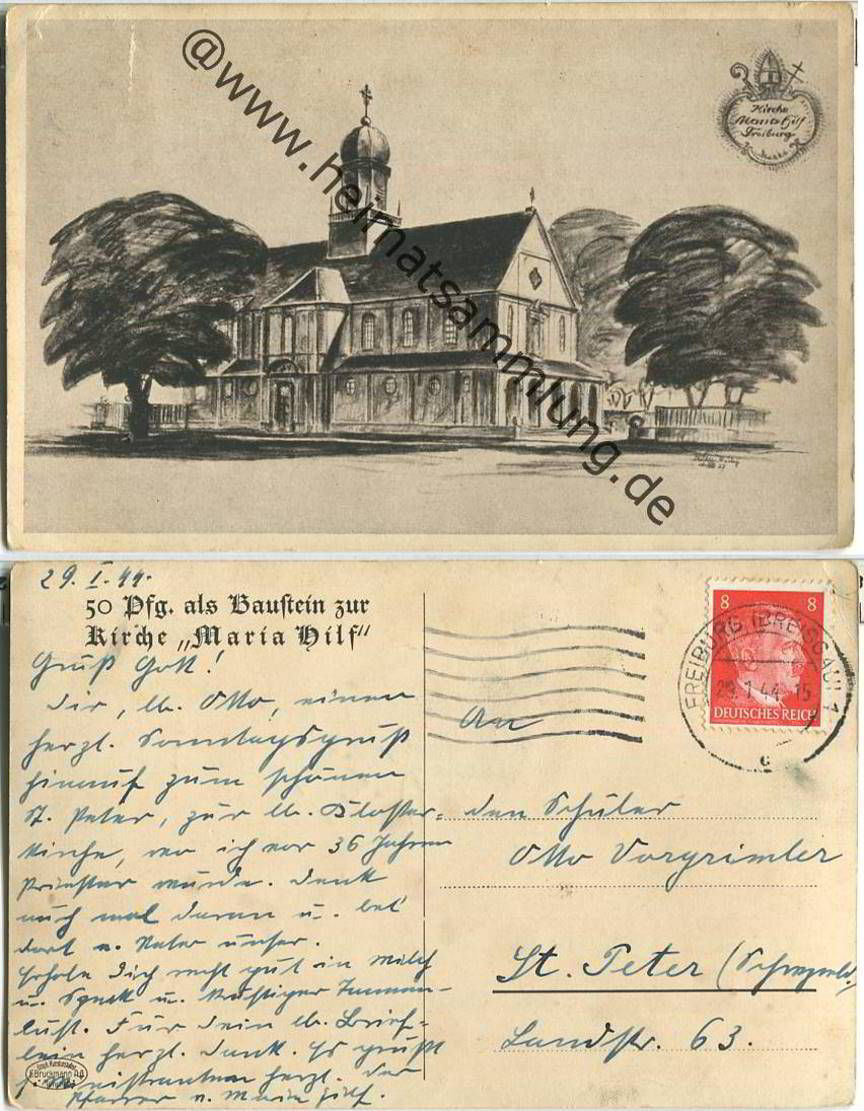 @www.heimatsammlung.de
Kirche
Maria Hilf
Freiburg
29. I. 44.
50 Pfg. als Baustein zur
Kirche „Maria Hilf“
Grüß Gott!
Dir, lb. Otto, einen
herzl. Sonntagsgruß
hinauf zum schönen
St. Peter, zur lb. Kloster-
kirche, wo ich vor 36 Jahren
Priester wurde. Denk
auch mal daran u. bet'
dort e. Vater unser.
Erhole Dich recht gut in Milch
u. Speck u. kräftiger
luft. Für Dein lb. Brief-
lein herzl. Dank. Es grüßt
herzl. der
Pfarrer v. Maria Hilf.
F. Bruckmann A.G.
8 8
DEUTSCHES REICH
FREIBURG (BREISGAU) 1
29.1.44.15
c
An
den Schüler
Otto Vorgrimler
St. Peter (Schwarzw.)
Landstr. 63.